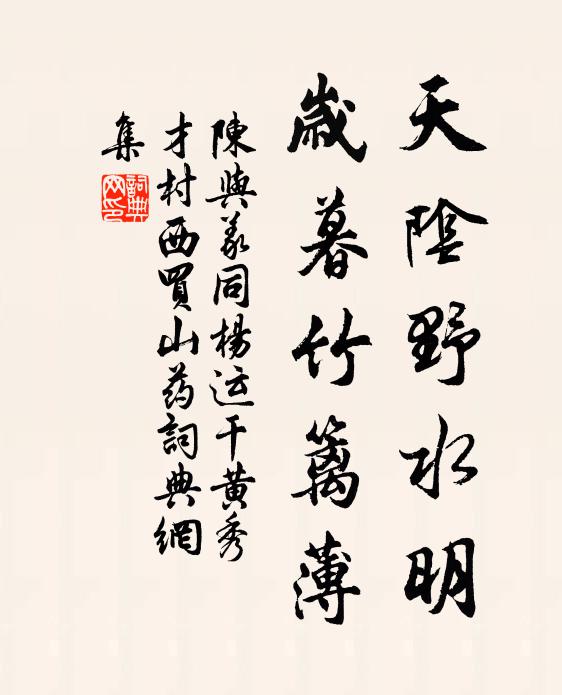 天陰野水明
歲暮竹籬薄
陳與義同楊运干黃秀
才村西買山药詞典網
集
詞典网印